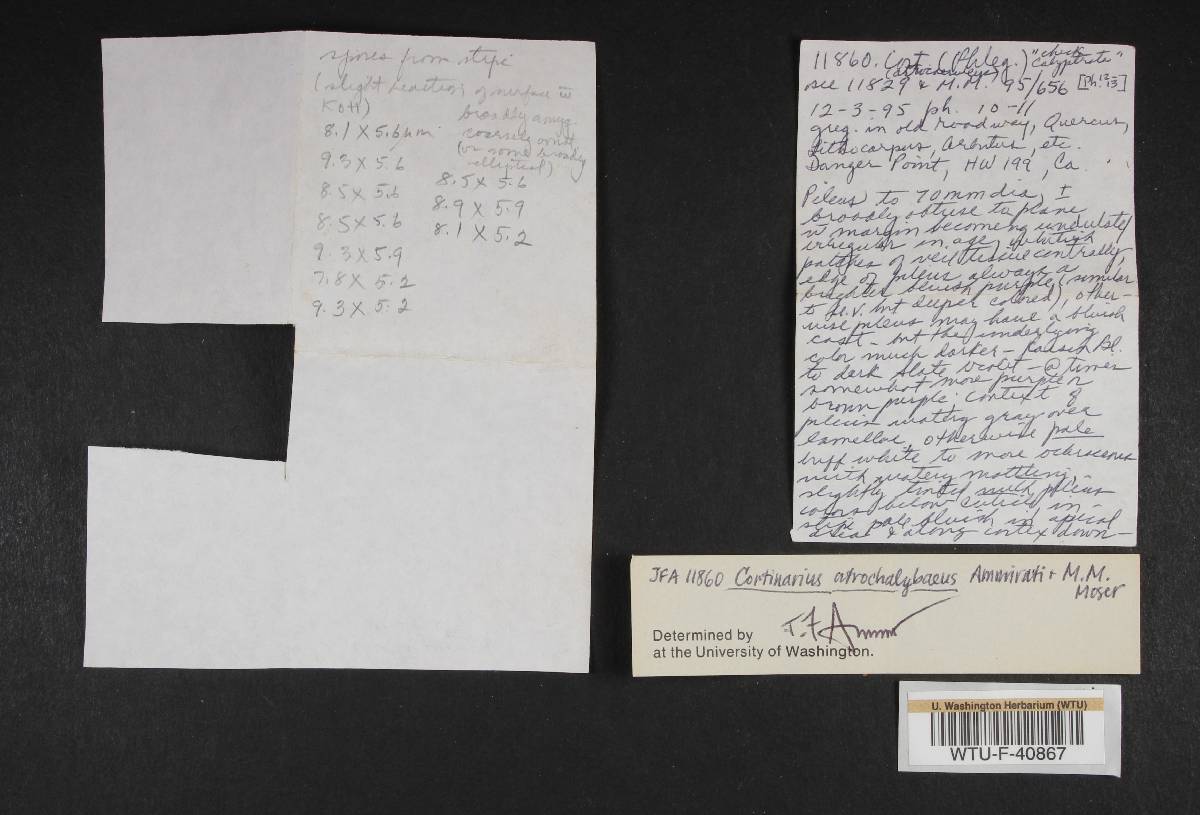 spores from stipe
(slight reaction of surface in
KOH)
broadly amyg.
coarsely ornt
(or some broadly
elliptical)
8.1 X 5.6 µm
9.3 X 5.6
8.5 X 5.6
8.5 X 5.6
9.3 X 5.9
7.8 X 5.2
9.3 X 5.2
8.5 X 5.6
8.9 X 5.9
8.1 X 5.2
11860. Cort (Phleg.) "check calyptrate"
see 11829 & M.M. 95/656 [Ph. 12-13]
12-3-95 ph. 10-11
greg. in old roadway, Quercus,
Lithocarpus, Arbutus, etc.
Danger Point, HW 199, Ca.
Pileus to 70 mm dia, ±
broadly obtuse to plane
w margin becoming undulate/
irregular in age, whitish
patches of veil tissue centrally,
edge of pileus always a
brighter bluish purple (similar
to H.V. but deeper colored), other-
wise pileus may have a bluish
cast - but the underlying
color much darker - Raisin Bl.
to dark slate violet - @ times
somewhat more purple or
brown purple; context of
pileus watery gray over
lamellae, otherwise pale
buff white to more ochraceous
with watery mottling,
slightly tinted with pileus
colors below cuticle, in
stipe pale bluish in apical
area & along cortex down-
JFA 11860 Cortinarius atrochalybaeus Ammirati + M.M.
Moser
Determined by J.F. Amm
at the University of Washington.
U. Washington Herbarium (WTU)
WTU-F-40867